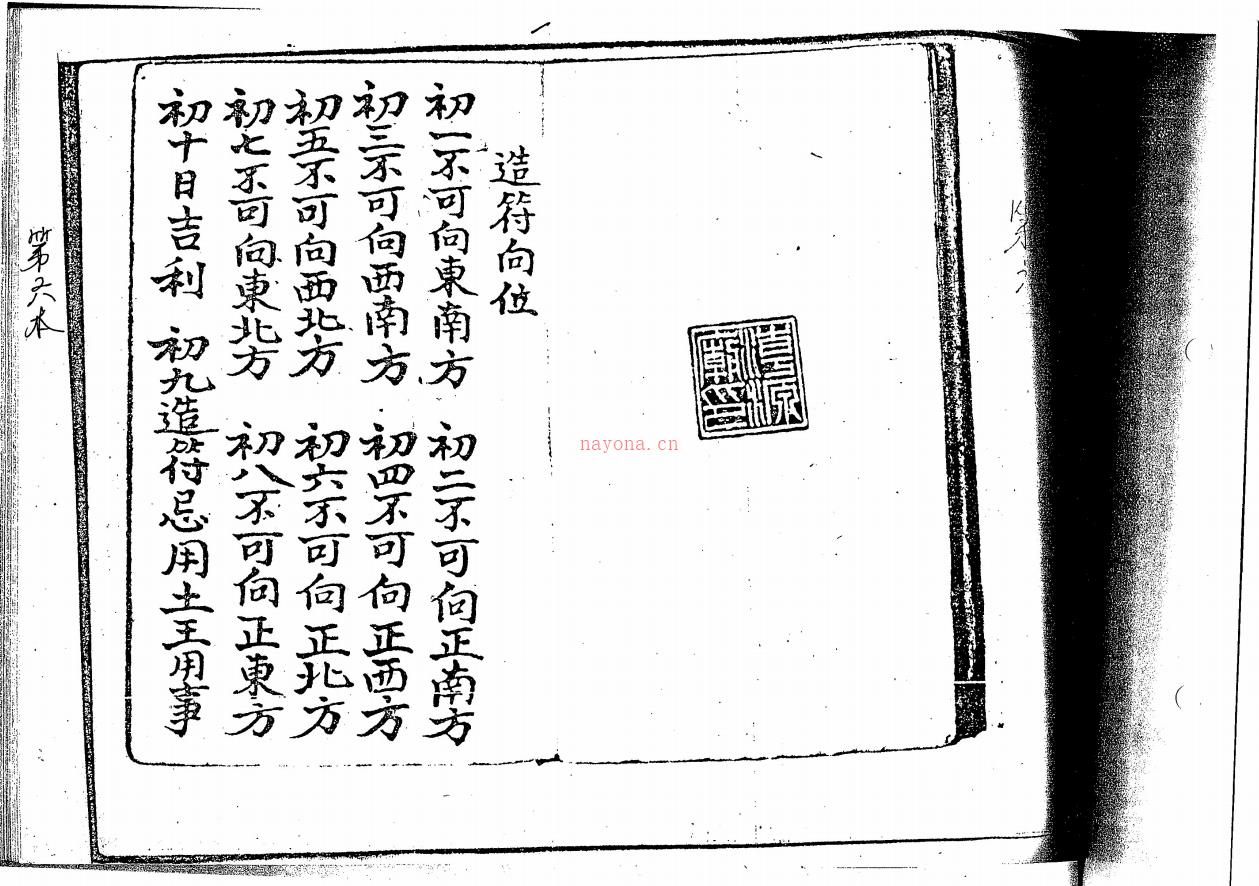 清源
廟印
nayona.cn
造符向位
初一不可向東南方　初二不可向正南方
初三不可向西南方　初四不可向正西方
初五不可向西北方　初六不可向正北方
初七不可向東北方　初八不可向正東方
初十日吉利　初九造符忌用土王用事
第六本